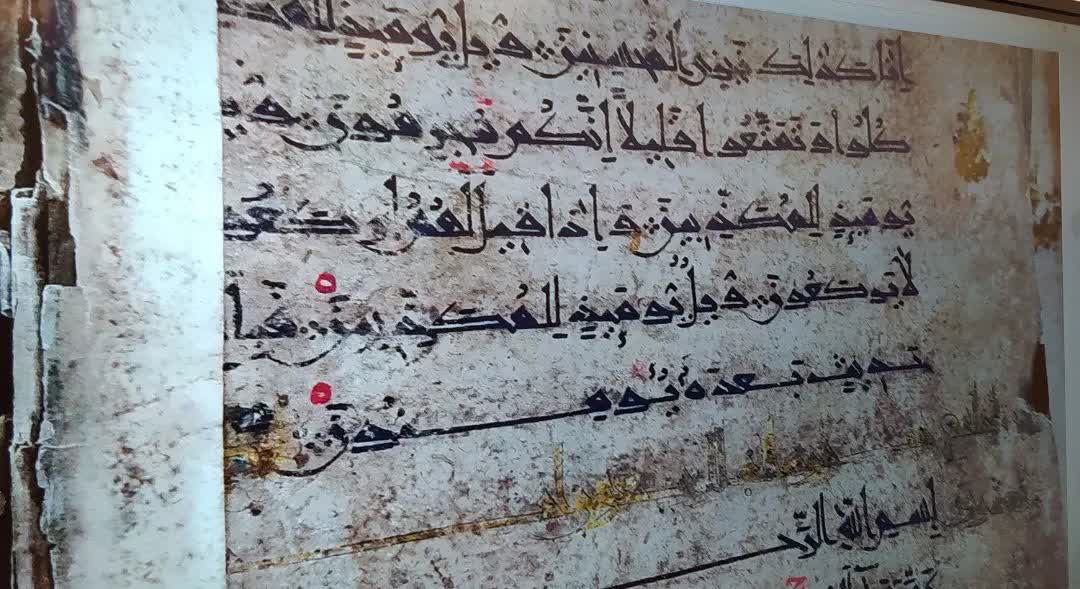 إنا كذلك نجزي المحسنين ويل يومئذ للمكذ
كلوا وتمتعوا قليلا إنكم مجرمون ويـ
يومئذ للمكذبين وإذا قيل لهم اركعو
لا يركعون ويل يومئذ للمكذبين فبأ
حديث بعده يؤمنون
بسم الله الرحـ